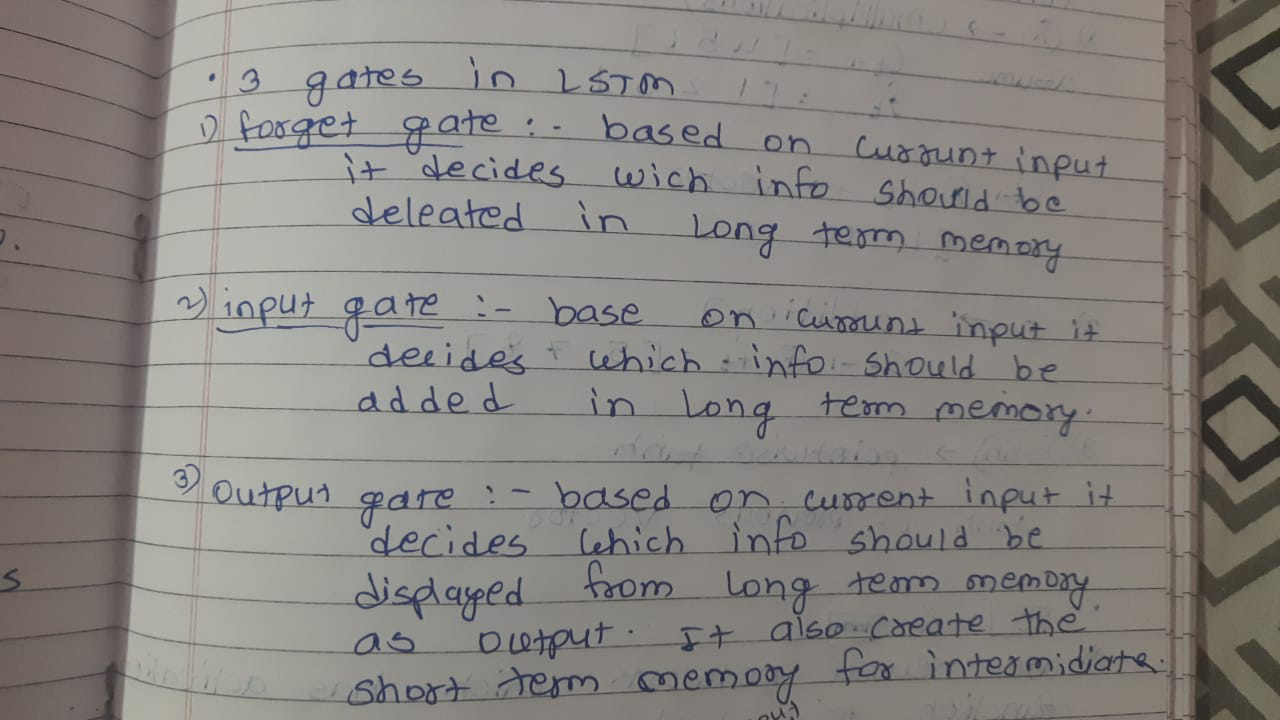 • 3 gates in LSTM
1) forget gate :- based on currunt input
it decides wich info should be
deleated in Long term memory
2) input gate :- base on currunt input it
decides which info should be
added in Long term memory.
3) output gate :- based on current input it
decides which info should be
displayed from Long term memory
as output. It also create the
short term memory for intermidiate.